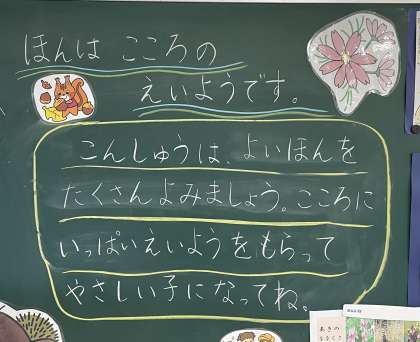 ほんは こころの
えいようです。
こんしゅうは、よいほんを
たくさんよみましょう。こころに
いっぱいえいようをもらって
やさしい子になってね。
あきの